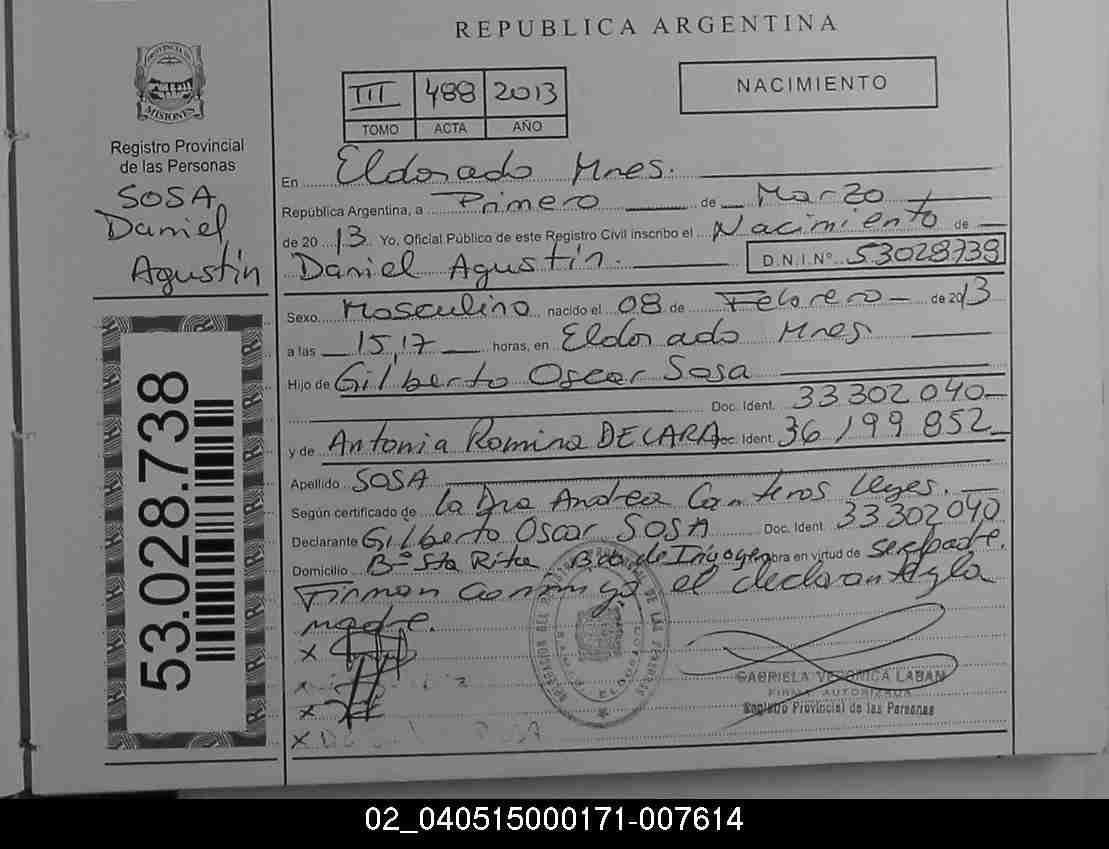 REPUBLICA ARGENTINA
PROVINCIA DE
MISIONES
Registro Provincial
de las Personas
SOSA
Daniel
Agustín
53.028.738
III 488 2013
TOMO ACTA AÑO
NACIMIENTO
En Eldorado Mnes.
República Argentina, a Primero de Marzo
de 20 13 Yo, Oficial Público de este Registro Civil inscribo el Nacimiento de
Daniel Agustín. D.N.I.Nº 53028738
Sexo Masculino nacido el 08 de Febrero de 2013
a las 15,17 horas, en Eldorado Mnes
Hijo de Gilberto Oscar Sosa
Doc. Ident. 33302040
y de Antonia Romina DECARA Doc. Ident. 36199852
Apellido SOSA
Según certificado de la Dra Andrea Canteros Leyes.
Declarante Gilberto Oscar SOSA Doc. Ident 33302040
Domicilio Bº Sta Rita B. de Irigoyen obra en virtud de ser padre.
Firman conmigo el declarante y la
madre.
x
x
x
GABRIELA VERONICA LABAN
FIRMA AUTORIZADA
Registro Provincial de las Personas
02_040515000171-007614